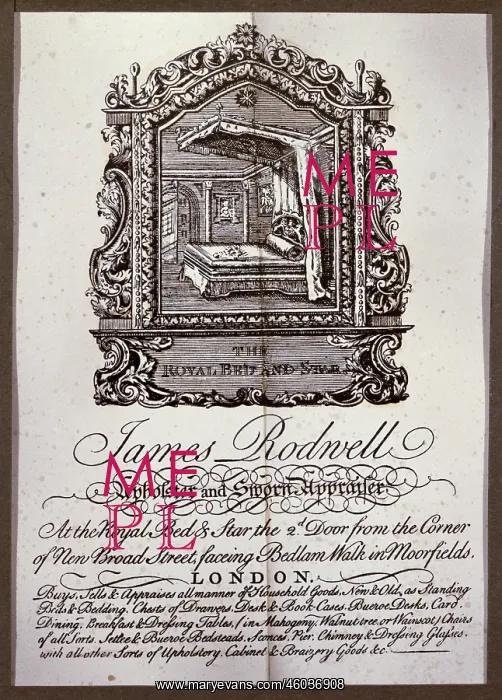 THE
ROYAL BED AND STAR
James Rodwell
Upholster and Sworn Appraiser
At the Royal Bed & Star the 2d Door from the Corner
of New Broad Street, faceing Bedlam Walk in Moorfields.
LONDON.
Buys, Sells & Appraises all manner of Household Goods, New & Old, as Standing
Beds & Bedding, Chests of Drawers, Desk & Book-Cases, Bueroe Desks, Card,
Dining, Breakfast & Dressing Tables, (in Mahogeny, Walnuttree, or Wainscot) Chairs
of all Sorts, Settee & Bueroe Bedsteads, Sconces, Pier, Chimney & Dressing Glasses,
with all other Sorts of Upholstory, Cabinet & Braizery Goods &c.
ME
PL
ME
PL
www.maryevans.com/46036908